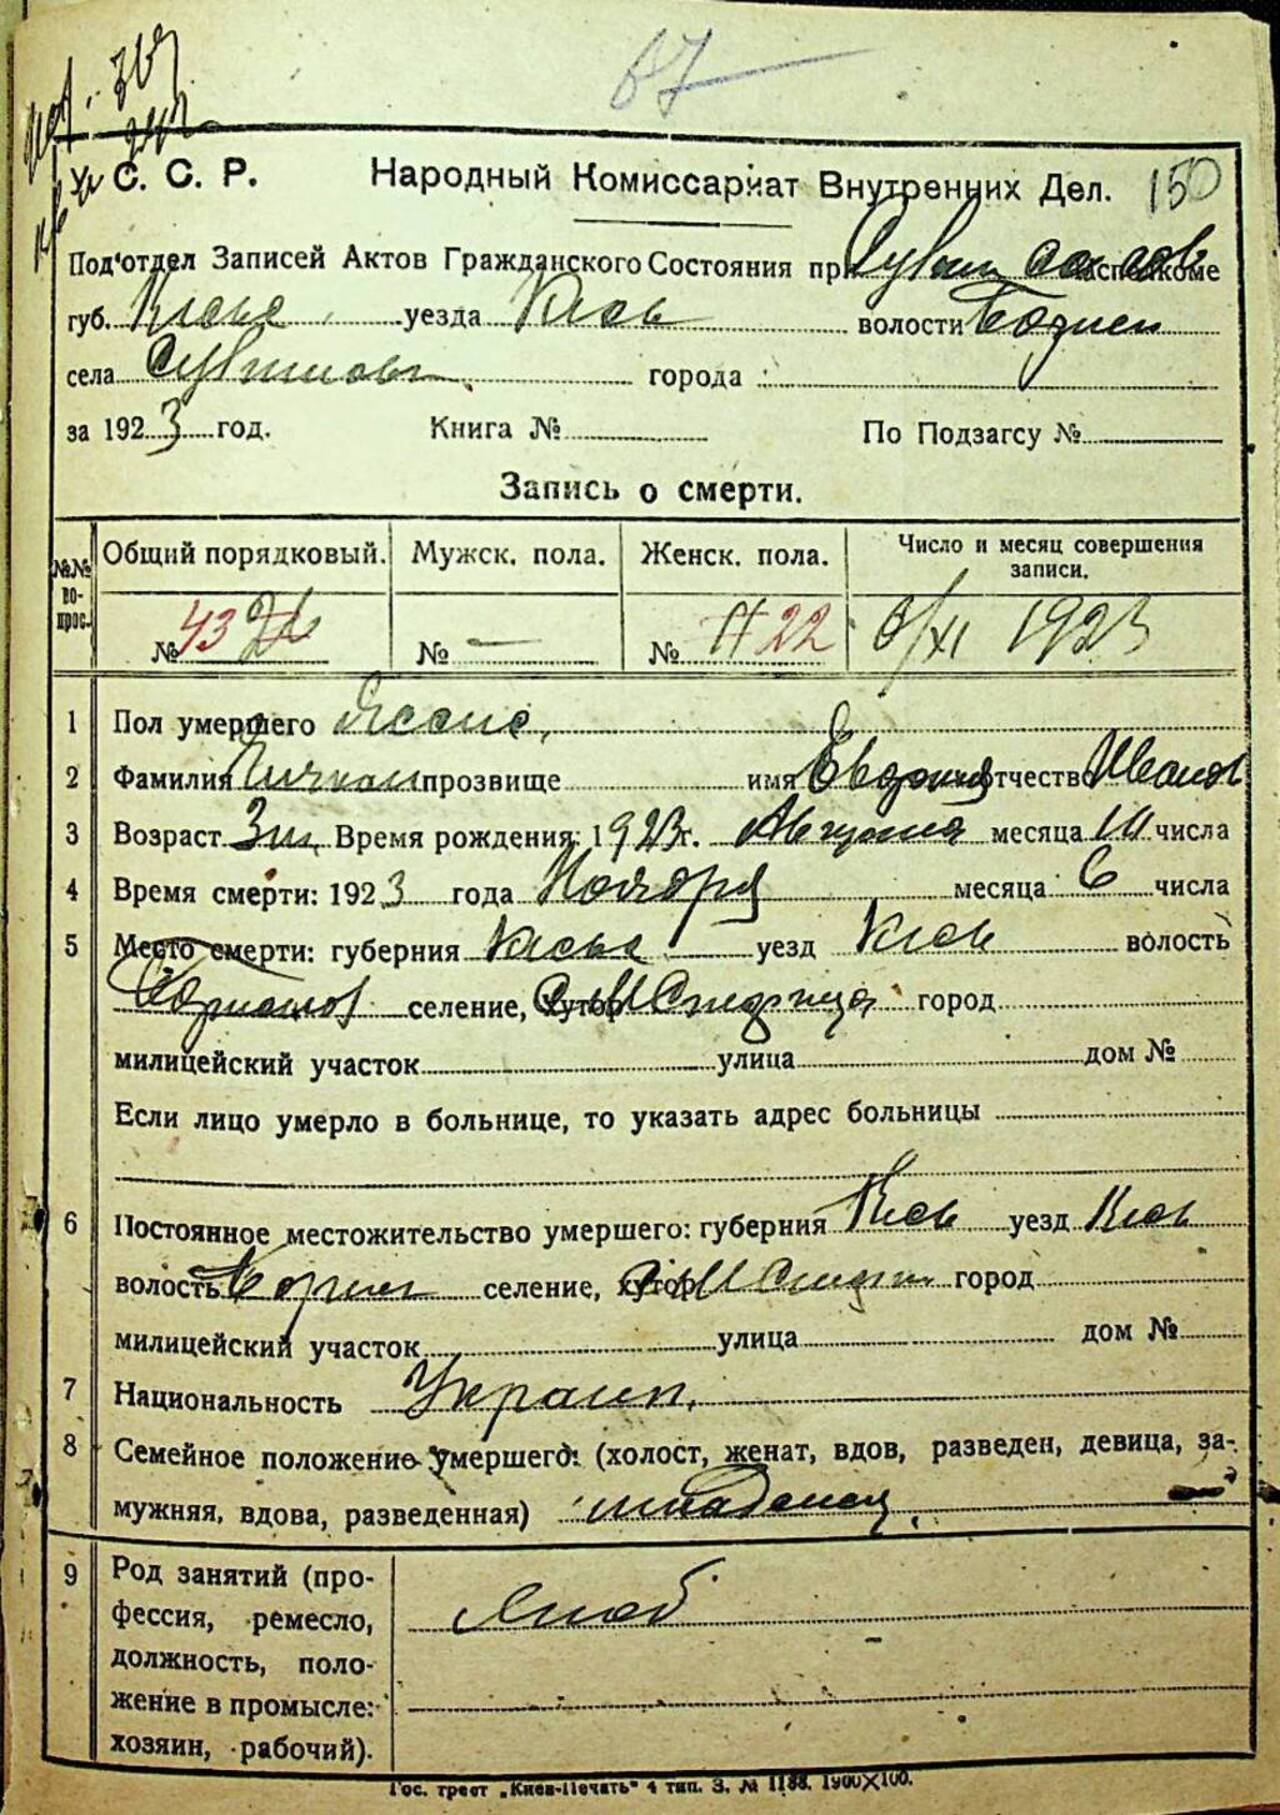 67
У. С. С. Р. Народный Комиссариат Внутренних Дел. 150
Под'отдел Записей Актов Гражданского Состояния при
губ. Киевс уезда Киев волости
села города
за 1923 год. Книга № По Подзагсу №
Запись о смерти.
№№ во-прос. Общий порядковый. Мужск. пола. Женск. пола. Число и месяц совершения записи.
№ 43 № — № 22 6/XI 1923
1 Пол умершего
2 Фамилия прозвище имя Евдокия отчество Иванов
3 Возраст 3 м. Время рождения: 1923 г. Августа месяца числа
4 Время смерти: 1923 года Ноября месяца 6 числа
5 Место смерти: губерния Киевс уезд Киев волость
селение, хутор город
милицейский участок улица дом №
Если лицо умерло в больнице, то указать адрес больницы
6 Постоянное местожительство умершего: губерния Киев уезд Киев
волость селение, хутор город
милицейский участок улица дом №
7 Национальность Украин.
8 Семейное положение умершего: (холост, женат, вдов, разведен, девица, за-
мужняя, вдова, разведенная) младенец
9 Род занятий (про-
фессия, ремесло,
должность, поло-
жение в промысле:
хозяин, рабочий).
Гос. трест „Киев-Печать" 4 тип. З. № 1188. 1900×100.